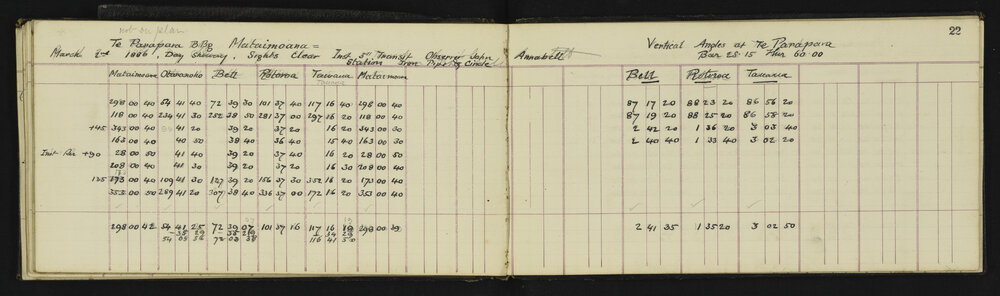 not on plan
22
Te Parapara B.Bg Mataimoana =
March 2nd 1886, Day Showery, Sights Clear Inst. 5" Transit Observer John Annabell
Station Iron Pipe Bg Circle
Vertical Angles at Te Parapara
Bar 28.15 Ther 60.00
Mataimoana Otaranoho Bell Rotoroa Tawana Mataimoana
Tauana
Bell Rotoroa Tauana
298 00 40 54 41 40 72 39 30 101 37 40 117 16 40 298 00 40
87 17 20 88 23 20 86 56 20
118 00 40 234 41 30 252 38 50 281 37 00 297 16 20 118 00 40
87 19 20 88 25 20 86 58 20
+45 343 00 40 41 20 39 20 37 20 16 20 343 00 30
2 42 20 1 36 20 3 03 40
163 00 40 40 50 38 40 36 40 15 40 163 00 30
2 40 40 1 33 40 3 02 20
+90 28 00 50 41 40 39 20 37 40 16 20 28 00 50
208 00 40 41 30 39 20 37 20 16 30 208 00 40
135 173 00 40 109 41 30 127 39 20 156 37 30 352 16 20 173 00 40
353 00 50 289 41 20 307 38 40 336 37 00 172 16 20 353 00 40
298 00 42 54 41 25 72 39 07 101 37 16 117 16 19 298 00 39
2 41 35 1 35 20 3 02 50
54 05 56 72 03 38 116 41 50